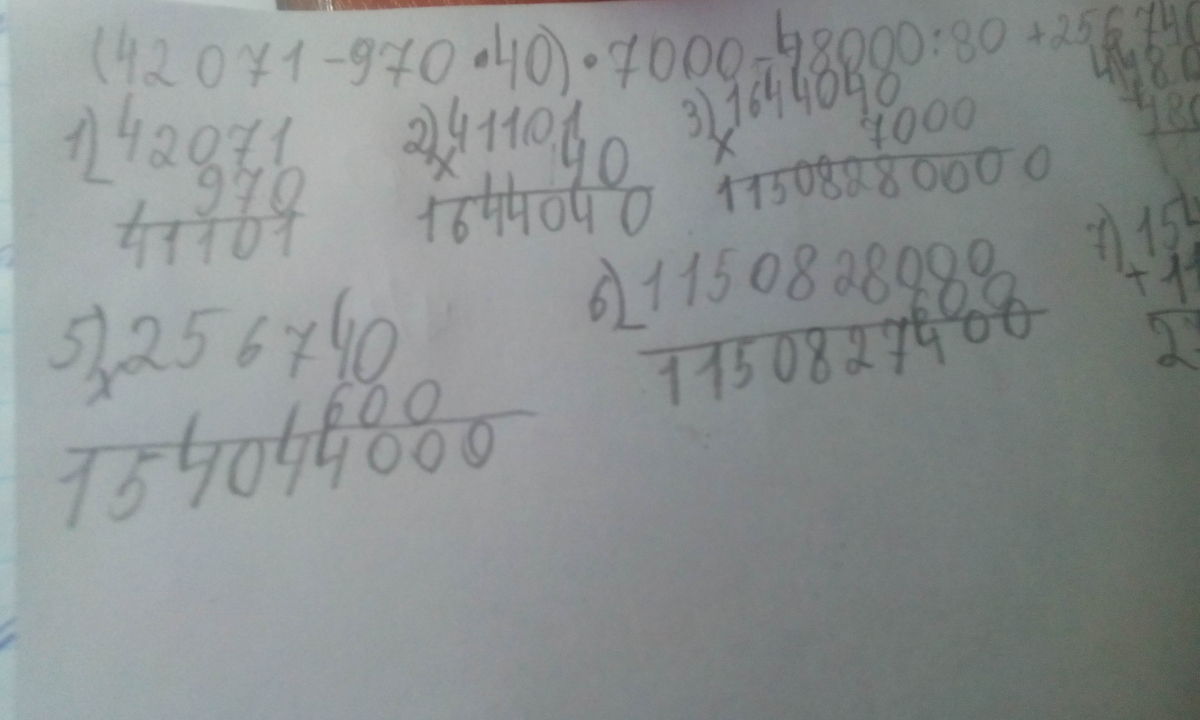 (42071-970·40)·7000-48000:80+256740
1) 42071
970
41101
2) 41101
×
40
1644040
3) 1644040
×
7000
11508280000
480
5) 256740
×
600
154044000
6) 1150828000
600
1150827400
7) 154
+ 11